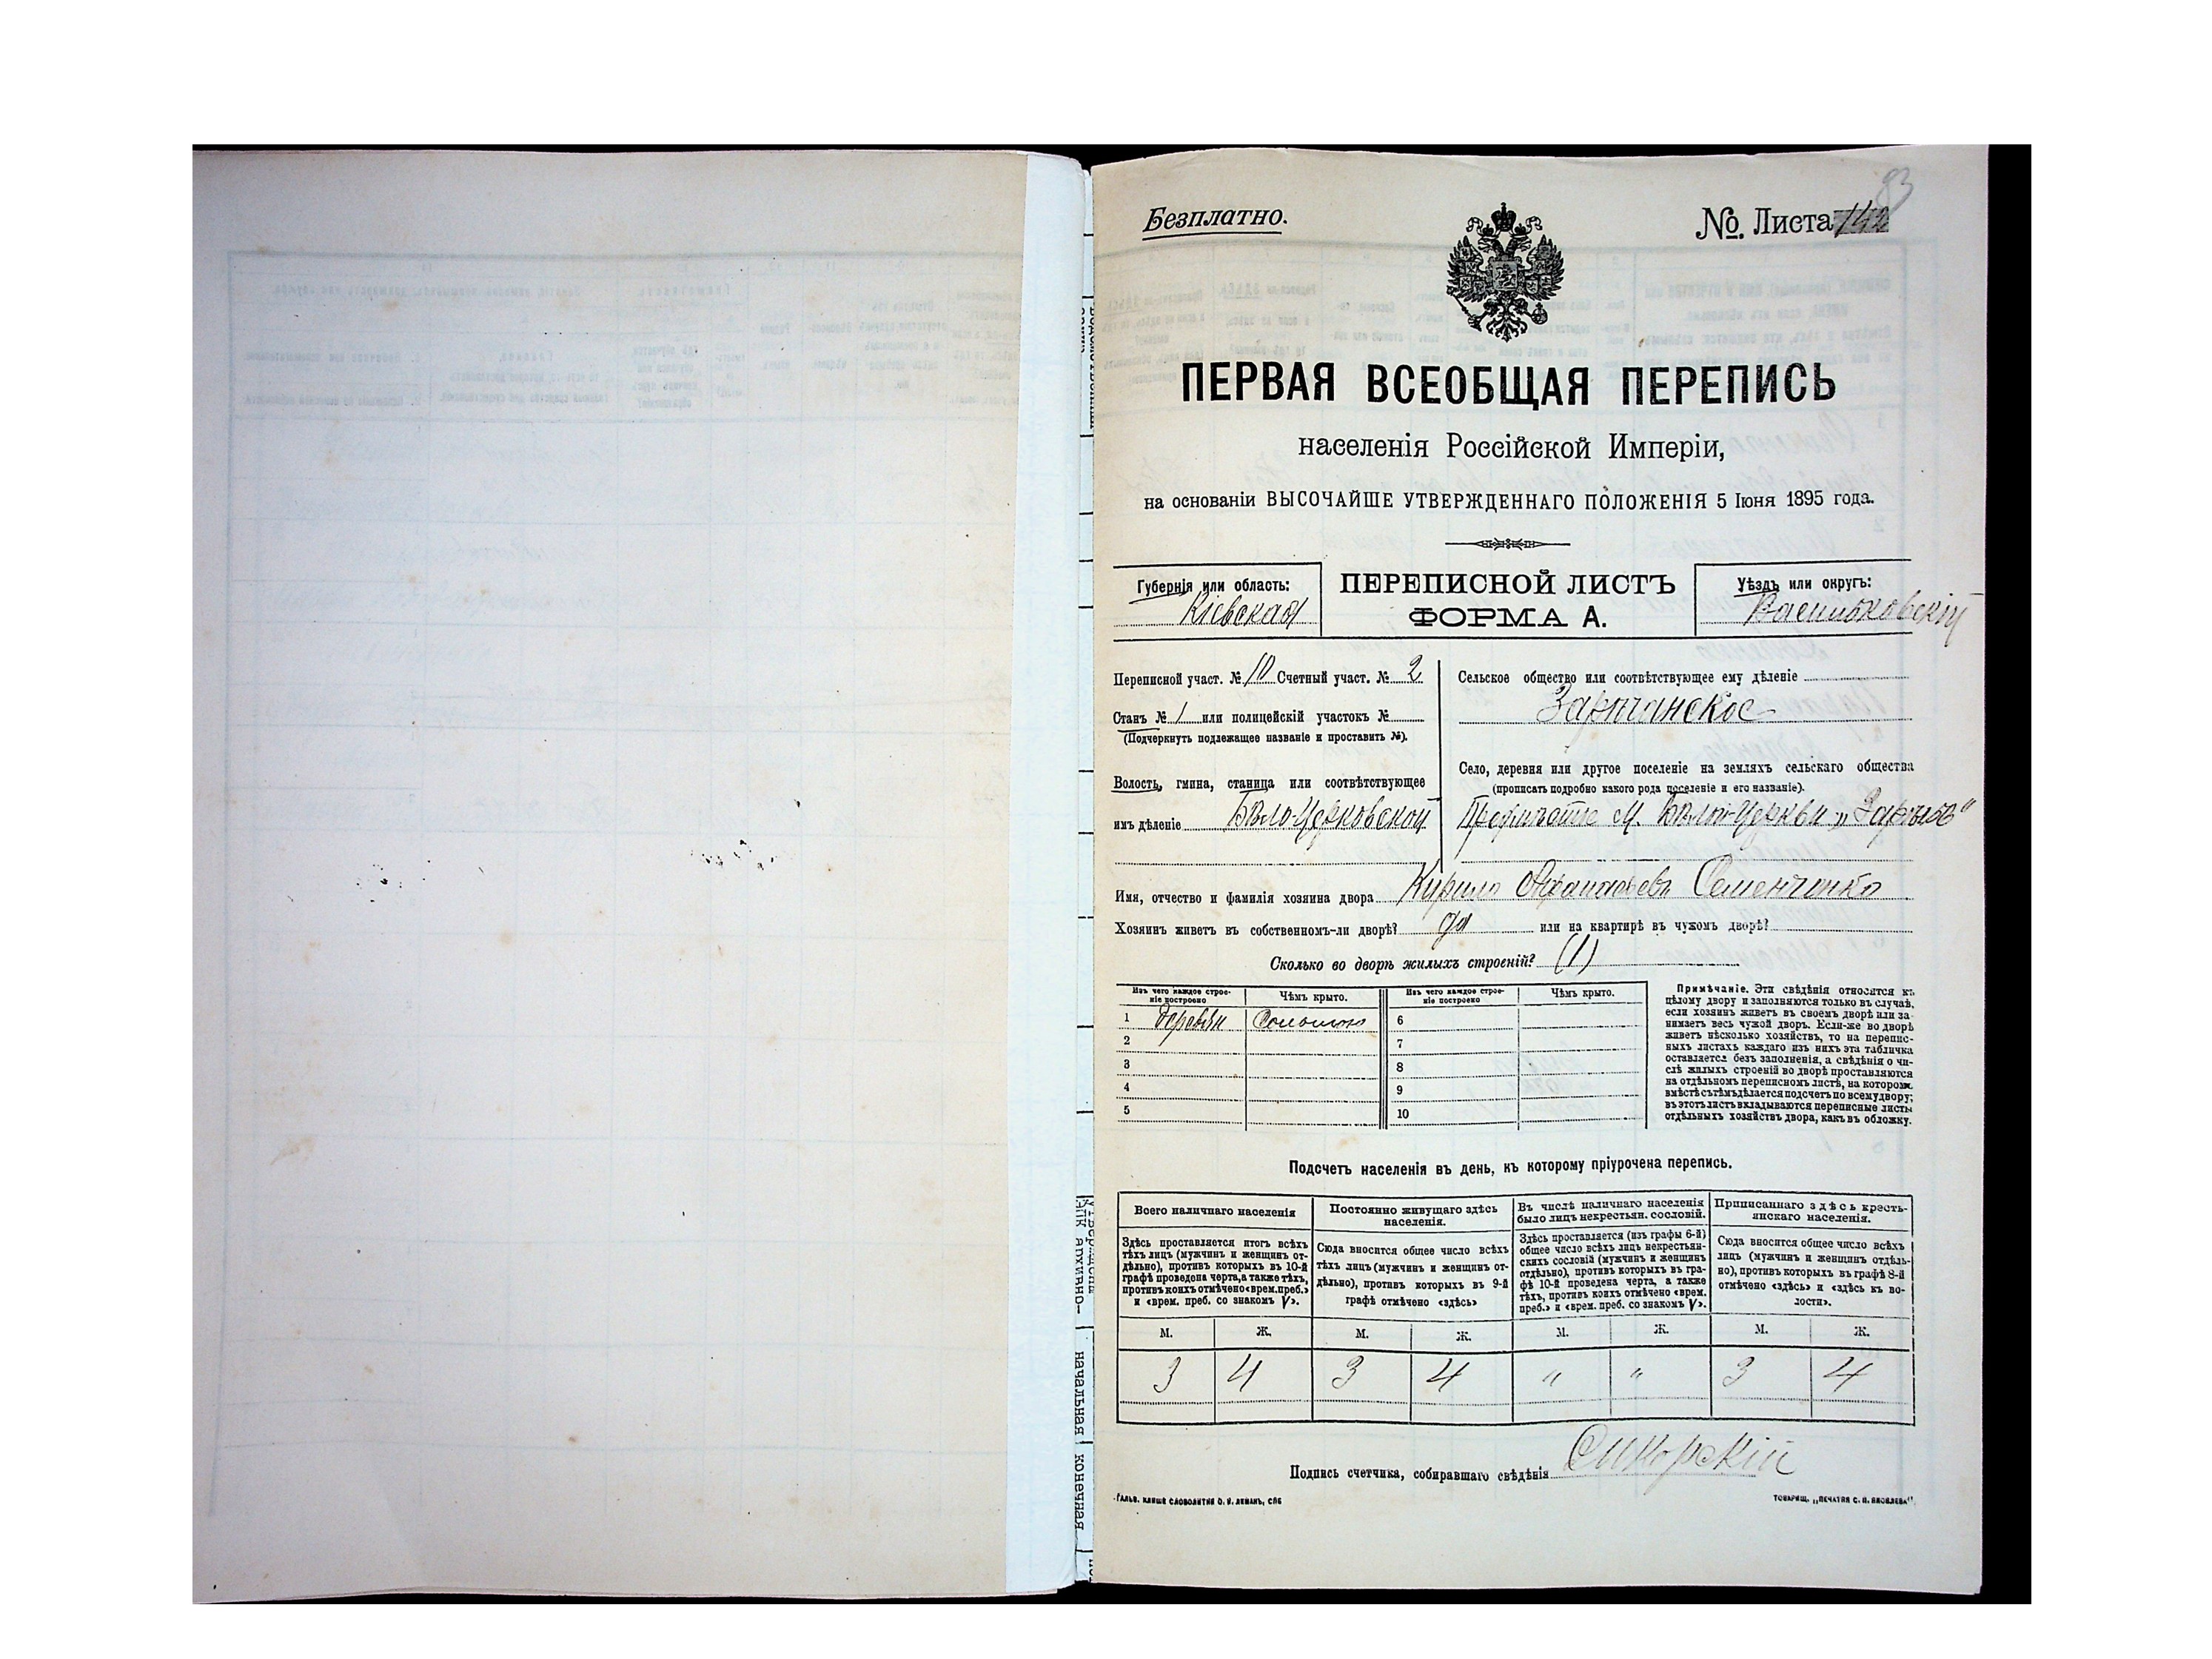 83
Безплатно.
№ Листа 142
ПЕРВАЯ ВСЕОБЩАЯ ПЕРЕПИСЬ
населенія Россійской Имперіи,
на основаніи ВЫСОЧАЙШЕ УТВЕРЖДЕННАГО ПОЛОЖЕНІЯ 5 Іюня 1895 года.
Губернія или область:
Кіевская
ПЕРЕПИСНОЙ ЛИСТЪ
ФОРМА А.
Уѣздъ или округъ:
Васильковскій
Переписной участ. № 10 Счетный участ. № 2
Станъ № 1 или полицейскій участокъ №
(Подчеркнуть подлежащее названіе и проставить №).
Волость, гмина, станица или соотвѣтствующее
имъ дѣленіе Бѣло-Церковской
Сельское общество или соотвѣтствующее ему дѣленіе
Зарѣчанское
Село, деревня или другое поселеніе на земляхъ сельскаго общества
(прописать подробно какого рода поселеніе и его названіе).
Предмѣстье М. Бѣлой-Церкви „Зарѣчье"
Имя, отчество и фамилія хозяина двора Кирило Афанасьевъ Семенченко
Хозяинъ живетъ въ собственномъ-ли дворѣ? да или на квартирѣ въ чужомъ дворѣ?
Сколько во дворѣ жилыхъ строеній? (1)
Изъ чего каждое строе-
ніе построено
Чѣмъ крыто.
Изъ чего каждое строе-
ніе построено
Чѣмъ крыто.
1 деревян Соломою 6
2 7
3 8
4 9
5 10
Примѣчаніе. Эти свѣдѣнія относятся къ
цѣлому двору и заполняются только въ случаѣ,
если хозяинъ живетъ въ своемъ дворѣ или за-
нимаетъ весь чужой дворъ. Если-же во дворѣ
живетъ нѣсколько хозяйствъ, то на перепис-
ныхъ листахъ каждаго изъ нихъ эта табличка
оставляется безъ заполненія, а свѣдѣнія о чи-
слѣ жилыхъ строеній во дворѣ проставляются
на отдѣльномъ переписномъ листѣ, на которомъ
вмѣстѣ съ тѣмъ дѣлается подсчетъ по всему двору;
въ этотъ листъ вкладываются переписные листы
отдѣльныхъ хозяйствъ двора, какъ въ обложку.
Подсчетъ населенія въ день, къ которому пріурочена перепись.
Всего наличнаго населенія
Здѣсь проставляется итогъ всѣхъ
тѣхъ лицъ (мужчинъ и женщинъ от-
дѣльно), противъ которыхъ въ 10-й
графѣ проведена черта, а также тѣхъ,
противъ коихъ отмѣчено «врем. преб.»
и «врем. преб. со знакомъ V».
Постоянно живущаго здѣсь
населенія.
Сюда вносится общее число всѣхъ
тѣхъ лицъ (мужчинъ и женщинъ от-
дѣльно), противъ которыхъ въ 9-й
графѣ отмѣчено «здѣсь»
Въ числѣ наличнаго населенія
было лицъ некрестьян. сословій.
Здѣсь проставляется (изъ графы 6-й)
общее число всѣхъ лицъ некрестьян-
скихъ сословій (мужчинъ и женщинъ
отдѣльно), противъ которыхъ въ гра-
фѣ 10-й проведена черта, а также
тѣхъ, противъ коихъ отмѣчено «врем.
преб.» и «врем. преб. со знакомъ V».
Приписаннаго здѣсь кресть-
янскаго населенія.
Сюда вносится общее число всѣхъ
лицъ (мужчинъ и женщинъ отдѣль-
но), противъ которыхъ въ графѣ 8-й
отмѣчено «здѣсь» и «здѣсь къ во-
лости».
М. Ж. М. Ж. М. Ж. М. Ж.
3 4 3 4 " " 3 4
Подпись счетчика, собиравшаго свѣдѣнія Сикорскій
Гальв. клише словолитни О. И. Леманъ, СПБ
Товарищ. „Печатня С. П. Яковлева".
начальная
конечная